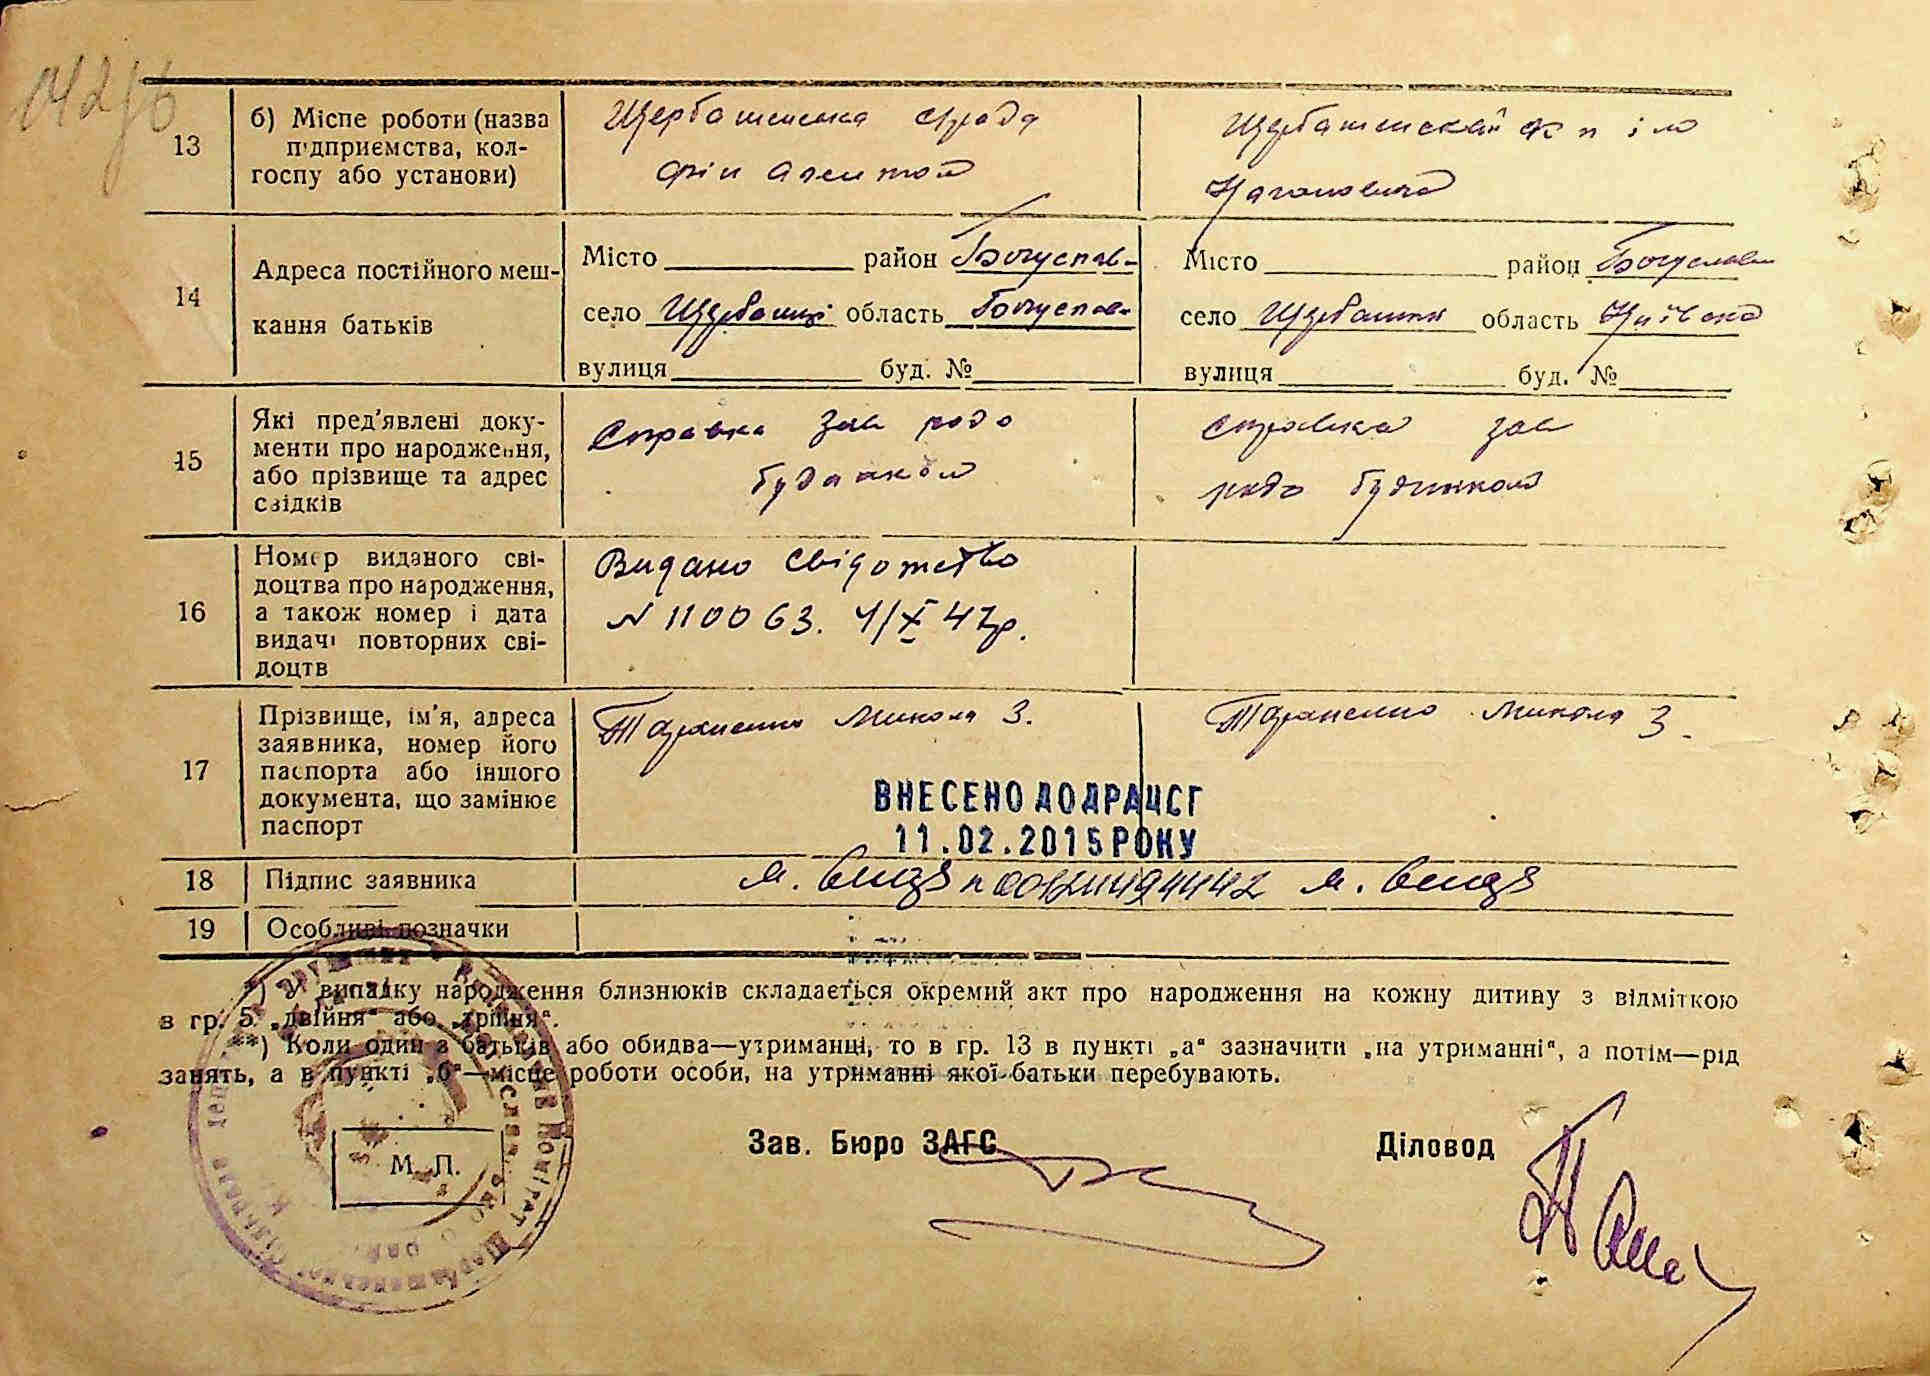 13
б) Місце роботи (назва
підприємства, кол-
госпу або установи)
Щербашенська с/рада
фін агентом
14
Адреса постійного меш-
кання батьків
Місто район Богуслав-
село Щербашці область Богуслав-
вулиця буд. №
Місто район Богуслав
село Щербашки область Київска
вулиця буд. №
15
Які пред'явлені доку-
менти про народження,
або прізвище та адрес
свідків
Справка зав родо
будинком
справка зав
родо будинком
16
Номер виданого сві-
доцтва про народження,
а також номер і дата
видачі повторних сві-
доцтв
Видано свідотство
№ 110063. 1/X 47р.
17
Прізвище, ім'я, адреса
заявника, номер його
паспорта або іншого
документа, що замінює
паспорт
Тараненко Микола З.
Тараненко Микола З.
ВНЕСЕНО ДО ДРАЦСГ
11.02.2015 РОКУ
18
Підпис заявника
19
Особливі позначки
*) У випадку народження близнюків складається окремий акт про народження на кожну дитину з відміткою
в гр. 5 „двійня“ або „трійня“.
**) Коли один з батьків або обидва—утриманці, то в гр. 13 в пункті „а“ зазначити „на утриманні“, а потім—рід
занять, а в пункті „б“—місце роботи особи, на утриманні якої батьки перебувають.
М. П.
Зав. Бюро ЗАГС
Діловод